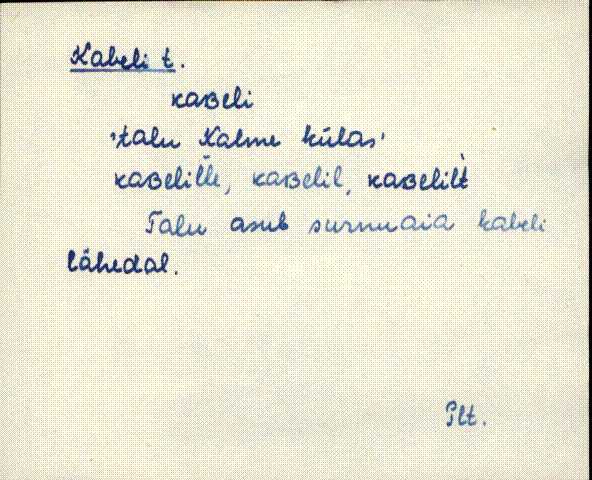 Kabeli t.
kaʙeli
'talu Kalme külas'
kaʙelil̆le, kaʙelil, kaʙelil̀t
Talu asub surnuaia kabeli
lähedal.
Plt.